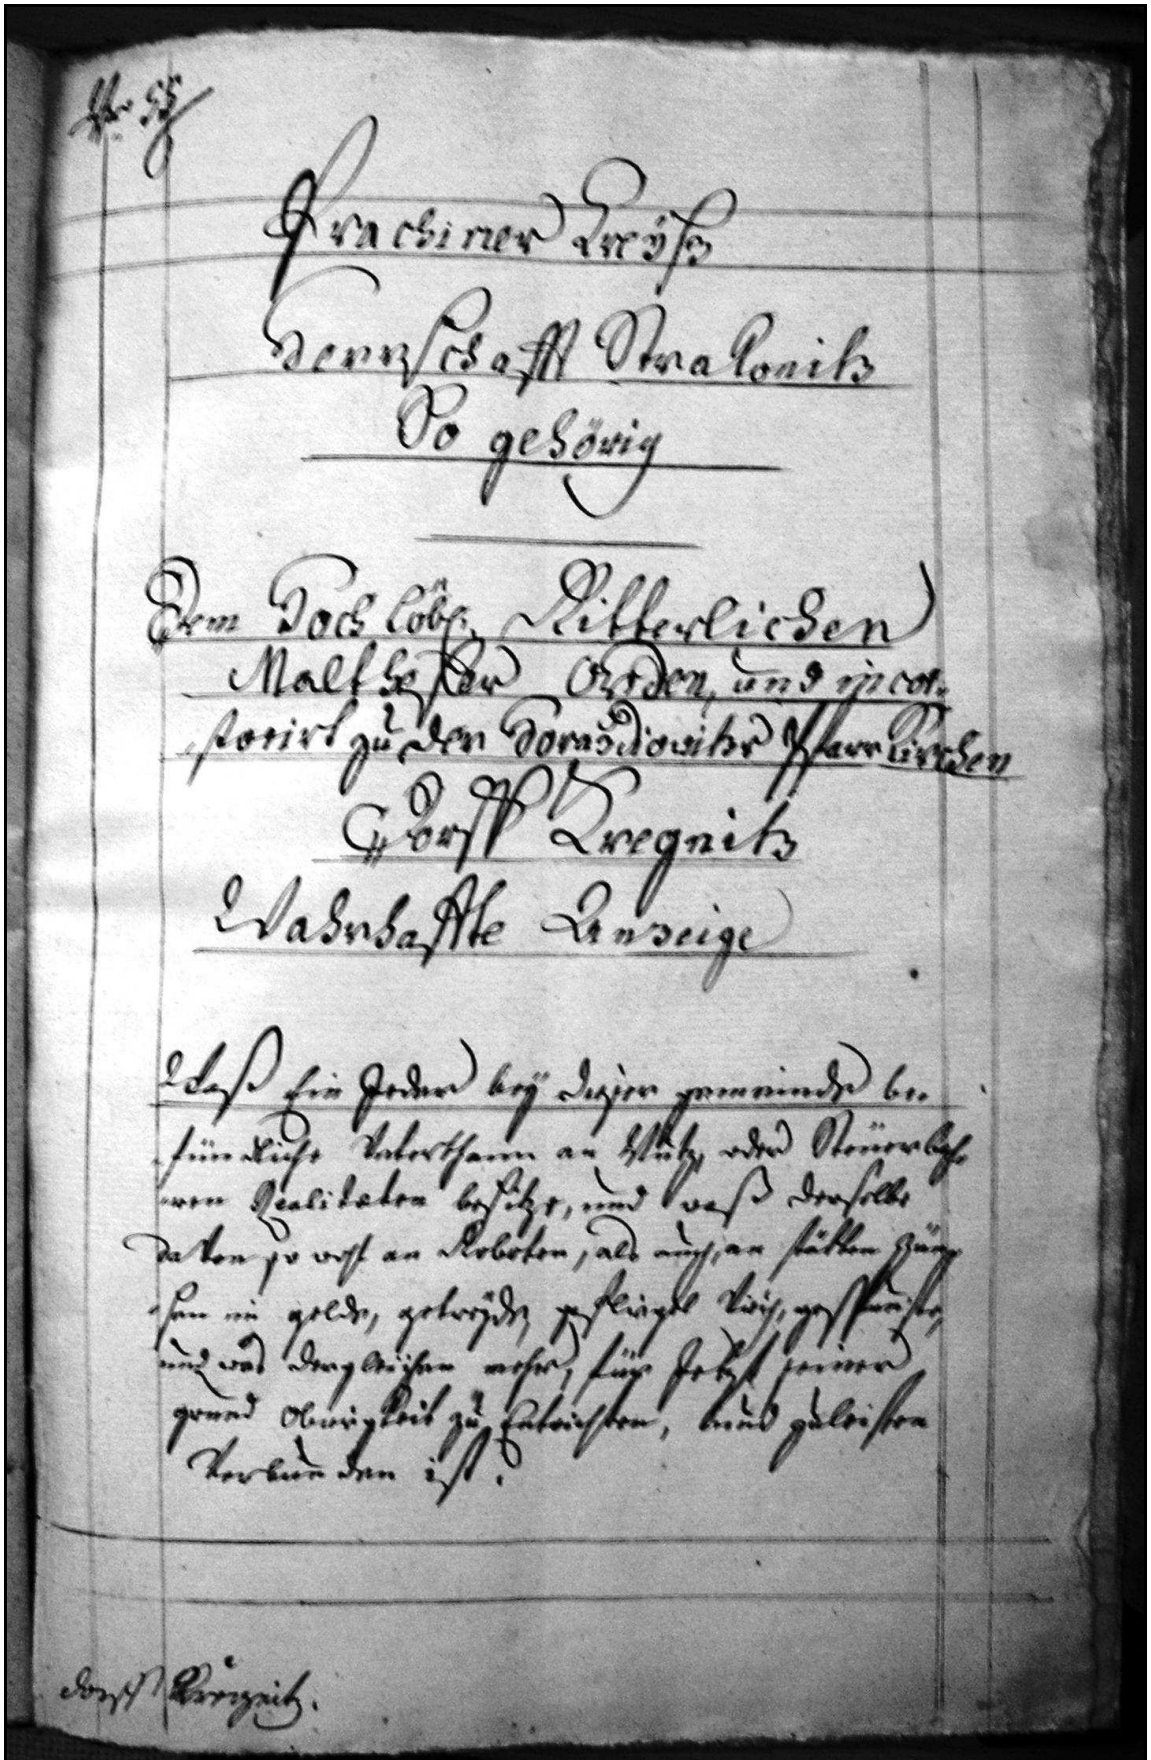 Nr 55
Prachiner Creÿß
Herrschafft Strakonitz
So gehörig
Dem Hochlöbl: Ritterlichen
Malthesser Orden, und incor
porirt zu der Horaždiowitzer Pfarr Kirchen
Dorff Kregnitz
Wahrhaffte Anzeige
Waß Ein Jeder beÿ dieser gemeinde be
fündliche Unterthann an Nutz, oder Steüerbah
ren Realitæten besitze, und waß derselbe
davon so wohl an Roboten, als auch an stätten Zün
sen in gelde, getreÿde, geflügel Vieh, gespunste,
und was dergleichen mehr, für Jetzt seiner
grund Obrigkeit zu Entrichten, und zuleisten
Verbunden ist.
dorff Kregnitz.